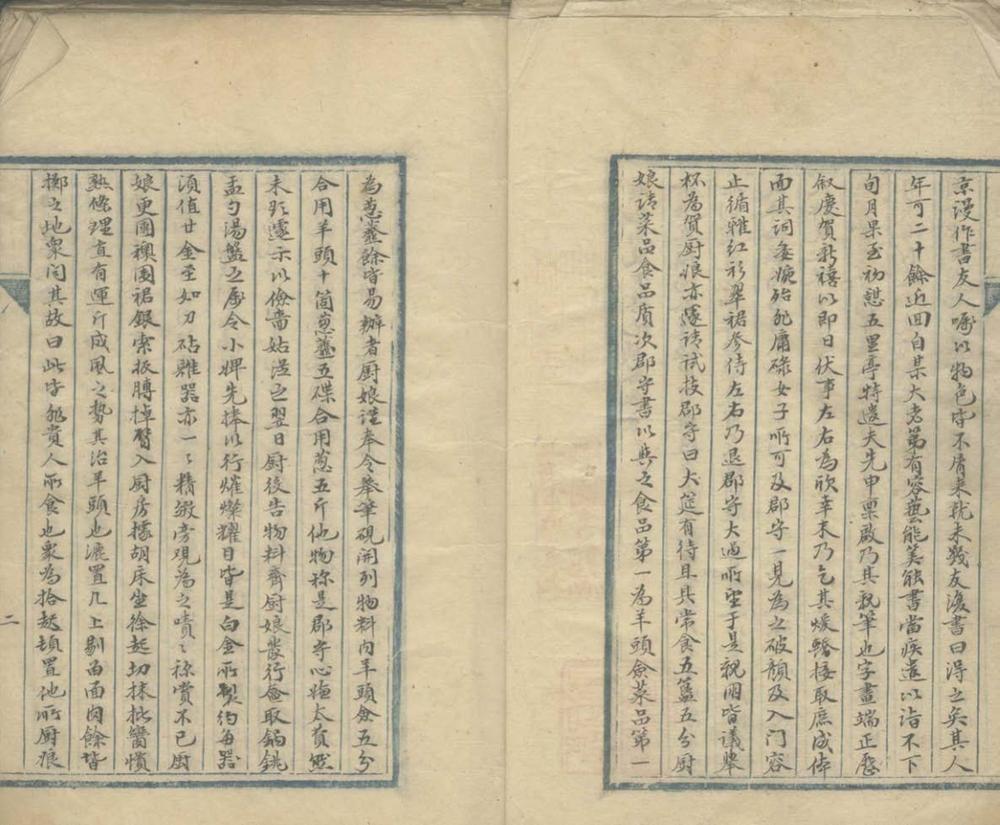 京漫作書友人囑以物色皆不屑來就未幾友復書曰得之矣其人
年可二十餘近回自某大老第有容藝能美能書當疾遣以詣不下
旬月果至初憇五里亭特遣夫先申稟啟乃其親筆也字畫端正歷
叙慶賀新禧以即日伏事左右為欣幸末乃乞其煖轎接取庶成体
面其詞委婉殆非庸碌女子所可及郡守一見為之破顏及入门容
止循雅红衫翠裙参侍左右乃退郡守大過所望于是親朋皆議舉
杯為賀厨娘亦遂請試技郡守曰大筵有待且具常食五簋五分厨
娘請菜品食品质次郡守書以與之食品第一為羊頭僉菜品第一
為葱虀餘皆易辦者厨娘謹奉令舉筆硯開列物料内羊頭僉五分
合用羊頭十箇葱虀五碟合用葱五斤他物称是郡守心嫌太費然
未欲遽示以儉嗇姑從之翌日厨役告物料齊厨娘發行奩取鍋銚
盂勺湯盤之屬令小婢先捧以行燿燦耀日皆是白金所製約每器
須值廿金至如刀砧雜器亦一〻精緻旁观為之嘖〻称賞不已厨
娘更圍襖圍裙銀索扳膊掉臂入厨房據胡床坐徐起切抹批臠慣
熟條理直有運斤成風之勢其治羊頭也漉置几上剔畱面肉餘皆
擲之地衆问其故曰此皆非貴人所食也衆為拾起頓置他所厨娘
二